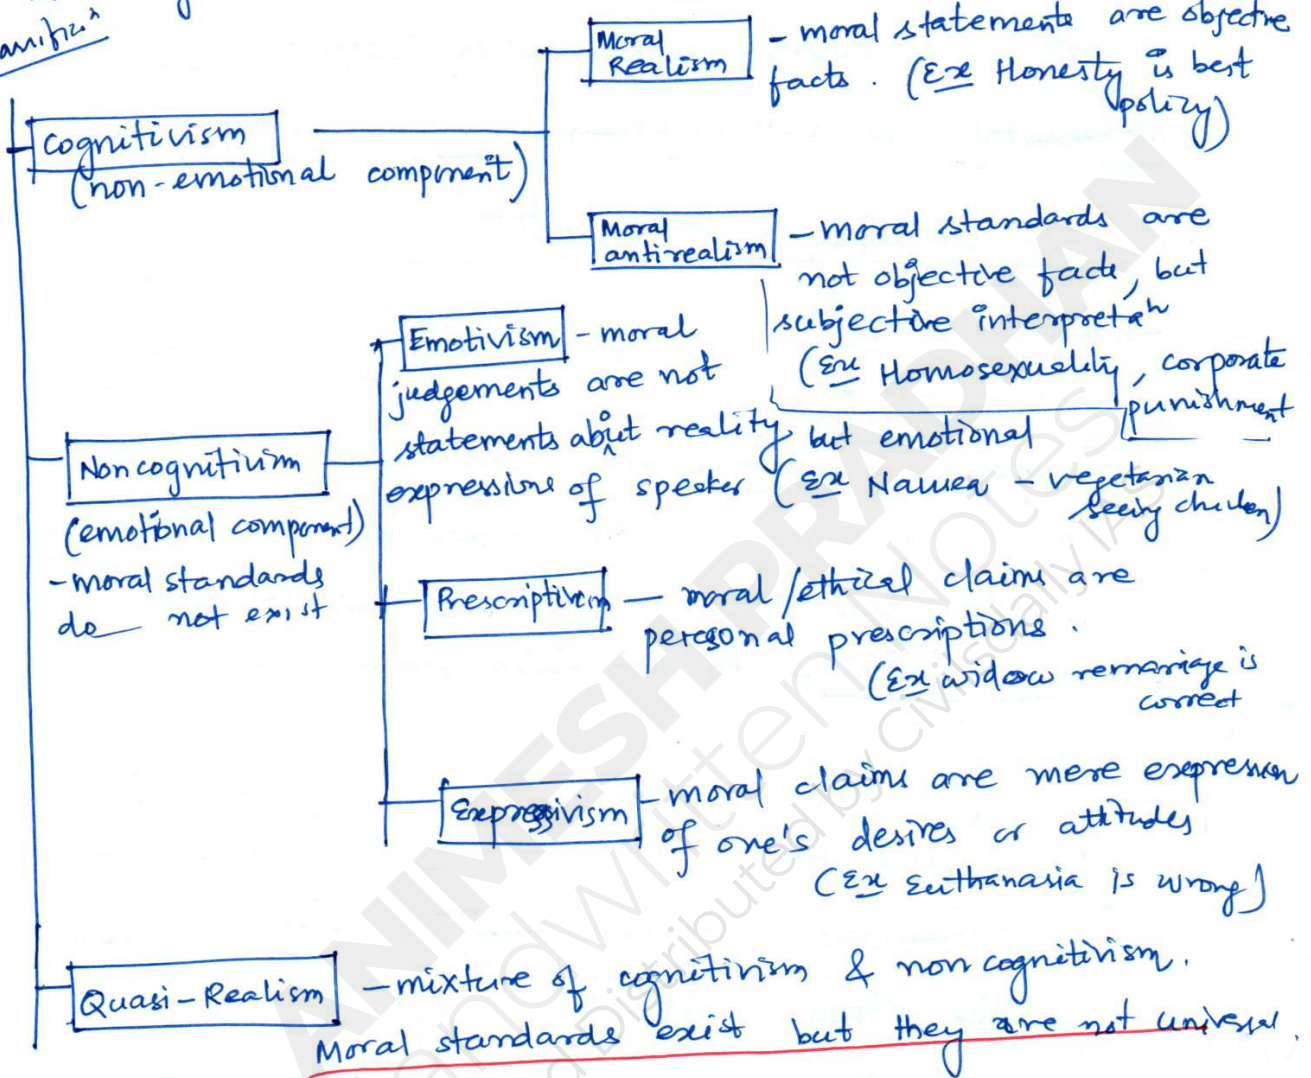 Cognitivism
(non-emotional component)
Moral
Realism
- moral statements are objective
facts. (Ex Honesty is best
policy)
Moral
antirealism
- moral standards are
not objective facts, but
subjective interpretatn
(Ex Homosexuality, corporate
punishment
Noncognitivism
(emotional component)
- moral standards
do not exist
Emotivism - moral
judgements are not
statements about reality, but emotional
expressions of speaker (Ex Nausea - vegetarian
seeing chicken)
Prescriptivism - moral/ethical claims are
peresonal prescriptions.
(Ex widow remarriage is
correct
Expressivism - moral claims are mere expression
of one's desires or attitudes
(Ex Euthanasia is wrong)
Quasi-Realism - mixture of cognitivism & non cognitivism.
Moral standards exist but they are not universal.
ANIMESH PRADHAN
Handwritten Notes
Distributed by Civilsdaily IAS